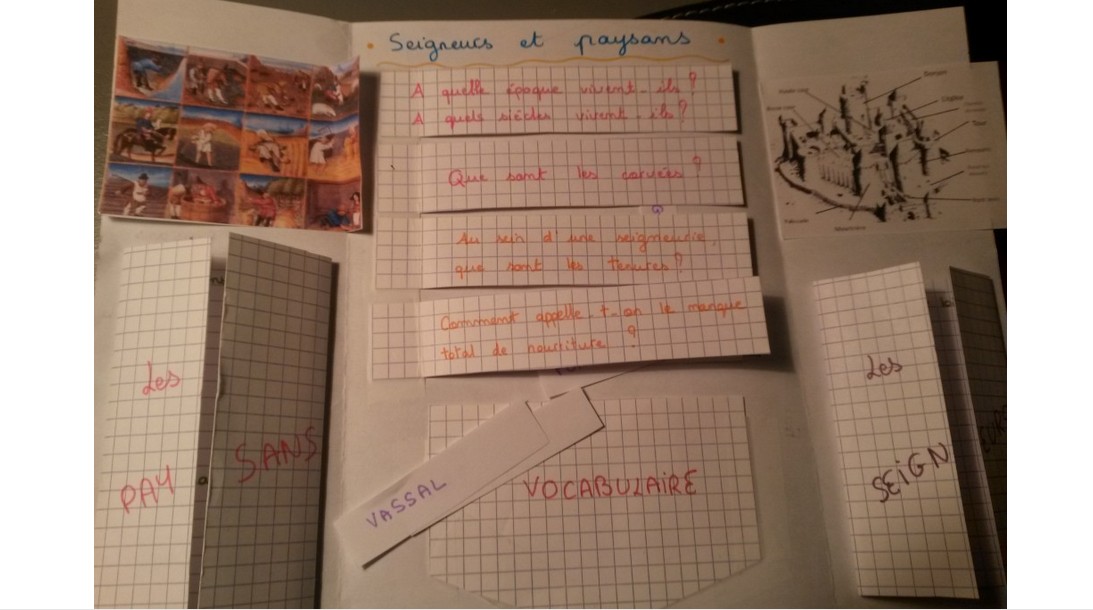 Seigneurs et paysans
A quelle époque vivent-ils ?
A quels siècles vivent-ils ?
Que sont les corvées ?
Au sein d'une seigneurie,
que sont les tenures ?
Comment appelle-t-on le manque
total de nourriture ?
Les
PAY SANS
VASSAL
VOCABULAIRE
Les
SEIGN EURS
Donjon